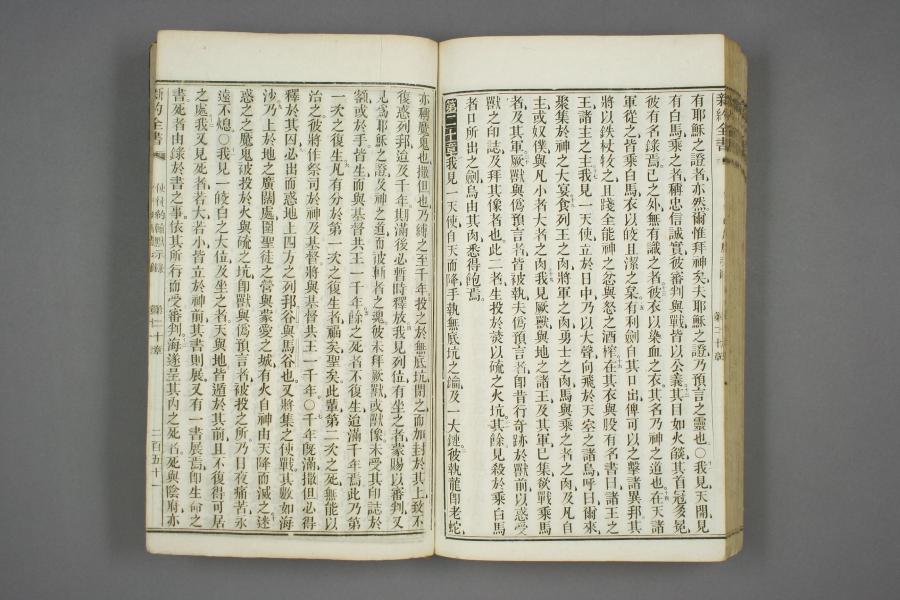 有耶穌之證者亦然爾惟拜神矣夫耶穌之證乃預言之靈也〇我見天開見
有白馬乘之者稱忠信誠實彼審判與戰皆以公義其目如火燄其首冠多冕
彼有名錄焉己之外無有識之者彼衣以染血之衣其名乃神之道也在天諸
軍從之皆乘白馬衣以皎且潔之枲有利劍自其口出俾可以之擊諸異邦其
將以鉄杖牧之且踐全能神之忿與怒之酒榨在其衣與股有名書曰諸王之
王諸主之主我見一天使立於日中乃以大聲向飛於天空之諸鳥呼曰爾來
聚集於神之大宴食列王之肉將軍之肉勇士之肉馬與乘之者之肉及凡自
主或奴僕與凡小者大者之肉我見厥獸與地之諸王及其軍已集欲戰乘馬
者及其軍厥獸與偽預言者皆被執夫偽預言者即昔行奇跡於獸前以惑受
獸之印誌及拜其像者也此二者生投於燃以硫之火坑其餘見殺於乘白馬
者口所出之劍鳥由其肉悉得飽焉
第二十章我見一天使自天而降手執無底坑之鑰及一大鏈彼執龍即老蛇
亦稱魔鬼也撒但也乃縛之至千年投之於無底坑閉之而加封於其上致不
復惑列邦迨及千年期滿後必暫時釋放我見列位有坐之者蒙賜以審判又
見為耶穌之證及神之道而被斬者之魂彼未拜厥獸或獸像未受其印誌於
額或於手皆生而與基督共王一千年餘之死者不復生迨滿千年焉此乃第
一次之復生凡有分於第一次之復生者福矣聖矣此輩第二次之死無能以
治之彼將作祭司於神及基督將與基督共王一千年〇千年既滿撒但必得
釋於其囚必出而惑地上四方之列邦谷與馬谷也又將集之使戰其數如海
沙乃上於地之廣闊處圍聖徒之營與蒙愛之城有火自神由天降而滅之迷
惑之之魔鬼被投於火與硫之坑即獸與偽預言者被投之所乃日夜痛苦永
遠不熄〇我見一皎白之大位及坐之者天與地皆遁於其前且不復得可居
之處我又見死者若大若小皆立於神前其書則展又有一書展焉即生命之
書死者由錄於書之事依其所行而受審判海遂呈其內之死者死與陰府亦
新約全書
第二十章
二百五十一